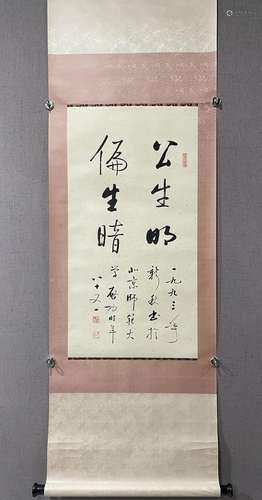 公生明
偏生暗
一九九三年
新秋书於
北京師範大
学启功时年
八十又一